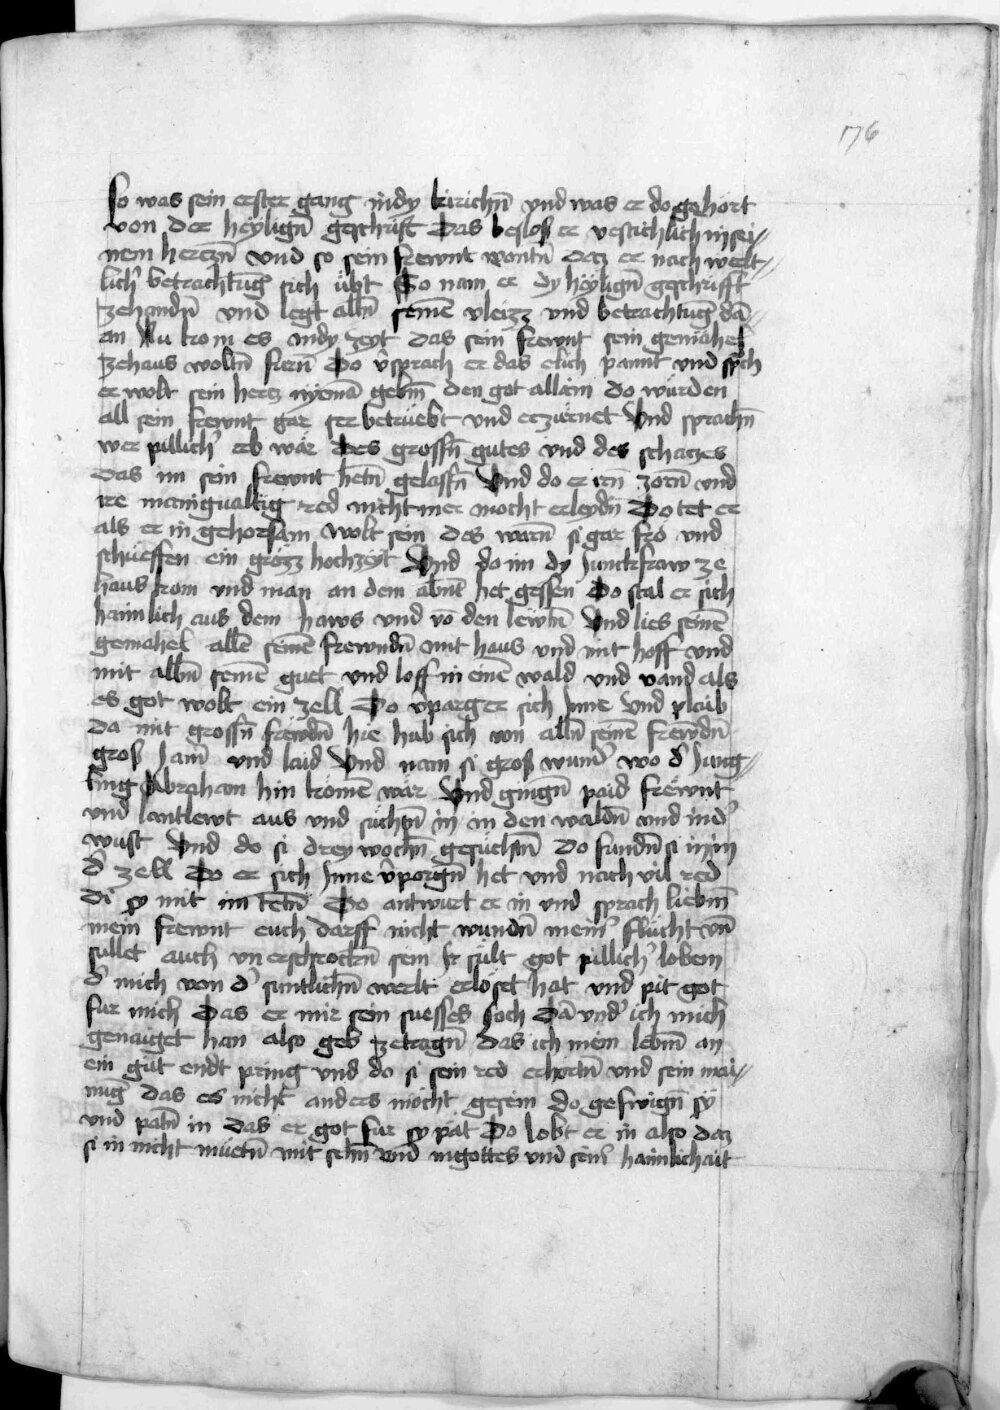 176
so was sein erster gang in dy kirichn̄ vnd was er do gehort
von der heylign̄ geschrift Das beslos er vestichlich in sei⸗
nem herczn̄ vnd so sein frewnt wontn̄ dez er nach werlt⸗
lich' betrachtūg sich ubt So nam er dy heylign̄ geschrifft
zehandn̄ vnd legt alln̄ seinē vleizz vnd betrachtūg dā⸗
an Nu kom es in dy zeyt das sein frewnt sein gemähel
zehaus woltn̄ furn̄ Do v'sprach er das elich pannt vnd sp̄ch
er wolt sein hercz nyemā gebm̄ den got allain do wurden
all sein frewnt gar ser betrüebt vnd erzürnet Vnd sprachn̄
wer pillich' erb wär des grossn̄ gutes vnd des schaczes
das im sein frewnt hetn̄ gelassn̄ Vnd do er irn̄ zorn̄ vnd
ire manigualtig red nicht mer mocht erleydn̄ Do tet er
als er in gehorsam wolt sein des warn̄ si gar fro vnd
schueffen ein grozz hochzeyt Vnd do im dy junckfraw ze
haus kom vnd man an dem abn̄t het gessen Do stal er sich
haimlich aus dem haws vnd vō den lewtn̄ Vnd lies seinē
gemahel allē seinē frewndn̄ mit haus vnd mit hoff vnd
mit alln̄ seinē guet vnd loff in einē wald vnd vand als
es got wolt ein zell Do v'parg er sich jnne Vnd plaib
da mit grossn̄ frewdn̄ hie hub sich von alln̄ seinē frewdn̄
gros jam' vnd laid Vnd nam si gros wund' wo d' jung⸗
ling Abraham hin komen wär Vnd gingn̄ paid frewnt
vnd lantlewt aus vnd suchtn̄ in in den waldn̄ vnd in d'
wust Vnd do si drey wochn̄ gesuchtn̄ Do fundn̄ si in in
d' zell Do er sich jnne v'porgn̄ het vnd nach vil red
di sy mit im tetn̄ Do antwurt er in vnd sprach liebm̄
mein frewnt euch darff nicht wundn̄ mein' flucht vn̄
sullet auch vnerschrockn̄ sein Jr sült got pillich' lobem
d' mich von d' suntlichn̄ werlt erloset hat vnd pit got
fur mich Das er mir sein suesses joch Dā vnd' ich mich
genaiget han also geb zetragn̄ das ich mein lebm̄ an
ein gut endt pring vnd do si sein red erhortn̄ vnd sein mai⸗
nūg das es nicht anders mocht gesein do geswign̄ sy
vnd patn̄ in das er got fur sy pat Do lobt er in also daz
si in nicht müetn̄ mit sehn̄ vnd in gottes vnd sein' haimlichait